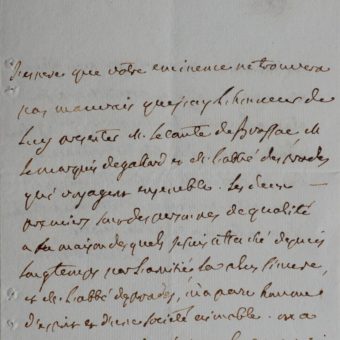 J'espere que votre eminence ne trouvera
pas mauvais que j'aye l'honneur de
luy presenter M. le comte de Brassac M.
le marquis de galard et M. l'abbé des
qui voyagent ensemble. Les deux
premiers sont des personnes de qualité
a la maison des quels je suis attaché depuis
longtemps par l'amitié la plus sincere,
et M. l'abbé m'a paru homme
d'esprit et d'une société aimable. on a